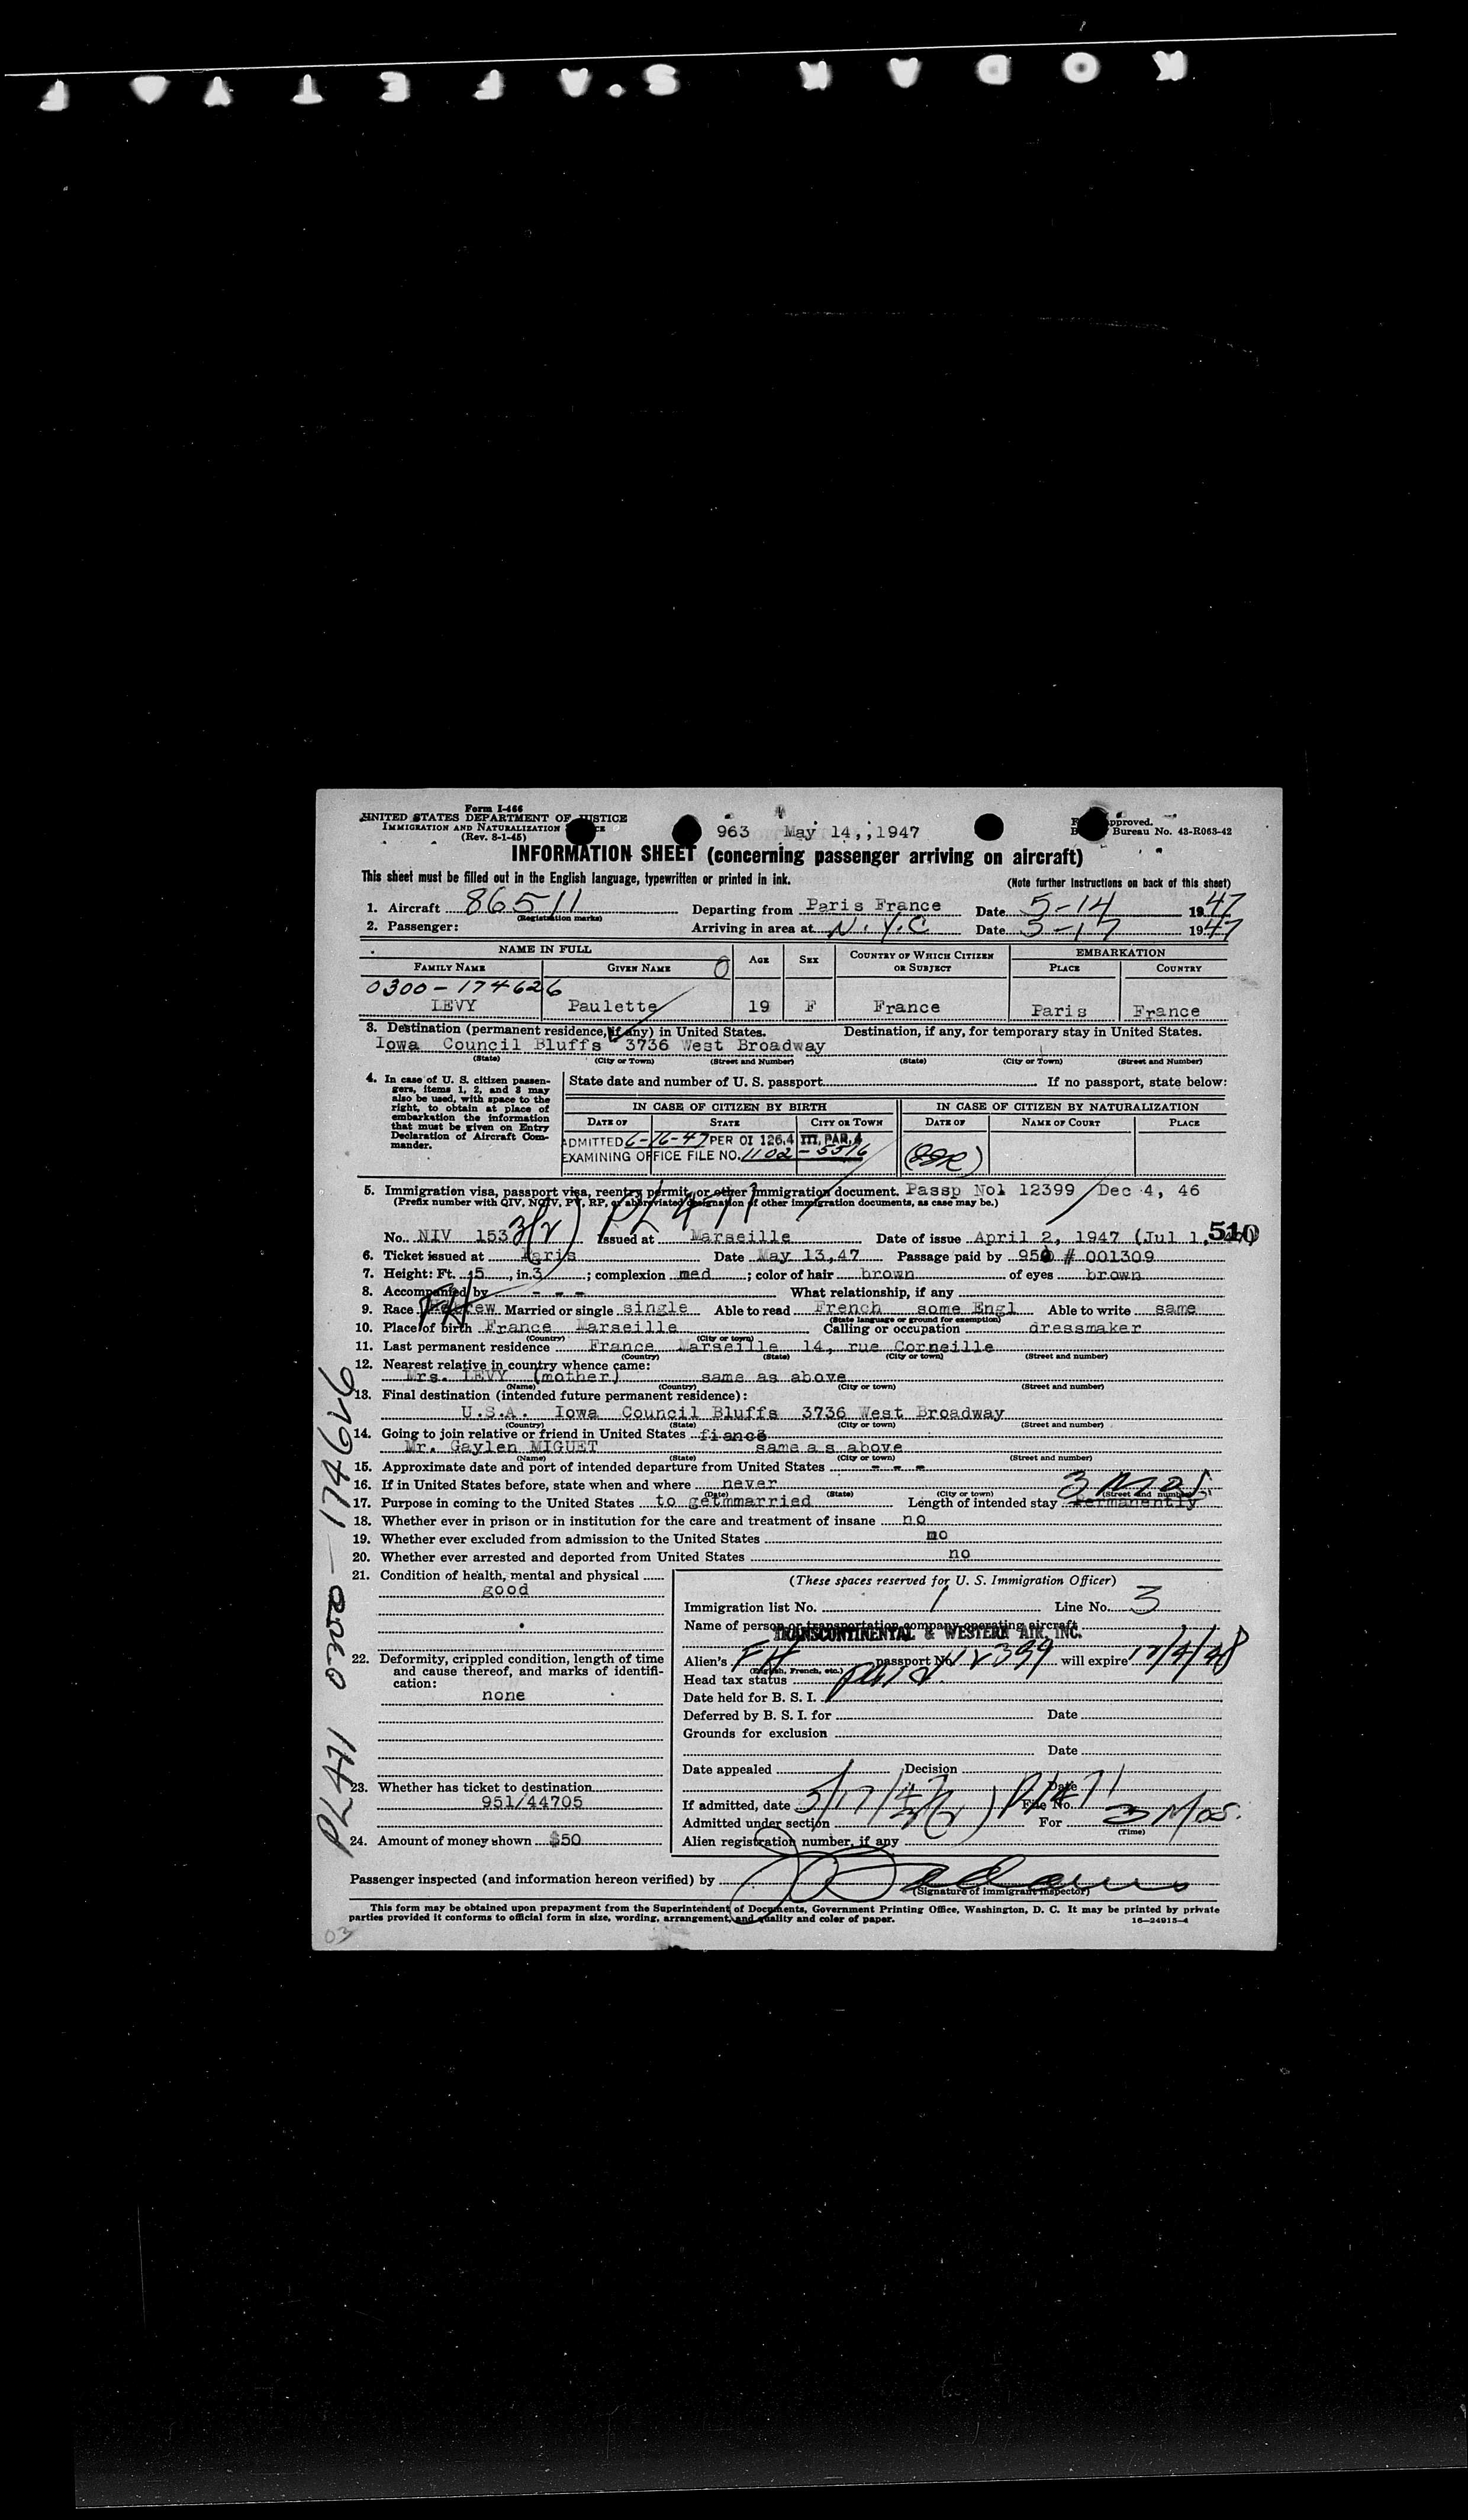 KODAK SAFETY
Form I-466
UNITED STATES DEPARTMENT OF JUSTICE
IMMIGRATION AND NATURALIZATION
(Rev. 8-1-45)
963 May 14,,1947
pproved.
Bureau No. 43-R063-42
INFORMATION SHEET (concerning passenger arriving on aircraft)
This sheet must be filled out in the English language, typewritten or printed in ink.
(Note further instructions on back of this sheet)
1. Aircraft 86511 Departing from Paris France Date 5-14 1947
(Registration marks)
2. Passenger: Arriving in area at N.Y.C Date 5-17 1947
NAME IN FULL AGE SEX COUNTRY OF WHICH CITIZEN OR SUBJECT EMBARKATION
FAMILY NAME GIVEN NAME PLACE COUNTRY
0300-174626
LEVY Paulette 19 F France Paris France
3. Destination (permanent residence, if any) in United States. Destination, if any, for temporary stay in United States.
Iowa Council Bluffs 3736 West Broadway
(State) (City or Town) (Street and Number) (State) (City or Town) (Street and Number)
4. In case of U. S. citizen passengers, items 1, 2, and 3 may also be used, with space to the right, to obtain at place of embarkation the information that must be given on Entry Declaration of Aircraft Commander.
State date and number of U. S. passport If no passport, state below:
IN CASE OF CITIZEN BY BIRTH IN CASE OF CITIZEN BY NATURALIZATION
DATE OF STATE CITY OR TOWN DATE OF NAME OF COURT PLACE
ADMITTED 6-16-47 PER OI 126.4 III, PAR. 4
EXAMINING OFFICE FILE NO. 1102-5516
5. Immigration visa, passport visa, reentry permit, or other immigration document. Passp No1 12399 Dec 4, 46
(Prefix number with QIV, NQIV, PV, RP, or abbreviated designation of other immigration documents, as case may be.)
3(2) PL 471
No. NIV 153 Issued at Marseille Date of issue April 2, 1947 (Jul 1, 510
6. Ticket issued at Paris Date May 13,47 Passage paid by 950 # 001309
7. Height: Ft. 5, in. 3; complexion med; color of hair brown of eyes brown
8. Accompanied by - - - What relationship, if any
9. Race Hebrew Married or single single Able to read French some Engl Able to write same
(State language or ground for exemption)
10. Place of birth France Marseille Calling or occupation dressmaker
(Country) (City or town)
11. Last permanent residence France Marseille 14, rue Corneille
(Country) (State) (City or town) (Street and number)
12. Nearest relative in country whence came:
Mrs. LEVY (mother) same as above
(Name) (Country) (City or town) (Street and number)
13. Final destination (intended future permanent residence):
U.S.A. Iowa Council Bluffs 3736 West Broadway
(Country) (State) (City or town) (Street and number)
14. Going to join relative or friend in United States fiancé
Mr. Gaylen MIGUET same a s above
(Name) (State) (City or town) (Street and number)
15. Approximate date and port of intended departure from United States - - -
16. If in United States before, state when and where never
(Date) (State) (City or town) (Street and number)
3 mos
17. Purpose in coming to the United States to getmmarried Length of intended stay Permanently
18. Whether ever in prison or in institution for the care and treatment of insane no
19. Whether ever excluded from admission to the United States no
20. Whether ever arrested and deported from United States no
21. Condition of health, mental and physical
good
22. Deformity, crippled condition, length of time and cause thereof, and marks of identification:
none
23. Whether has ticket to destination
951/44705
24. Amount of money shown $50
(These spaces reserved for U. S. Immigration Officer)
Immigration list No. 1 Line No. 3
Name of person or transportation company operating aircraft
TRANSCONTINENTAL & WESTERN AIR, INC.
Alien's FH passport No. 12399 will expire 12/4/48
(English, French, etc.)
Head tax status paid
Date held for B. S. I.
Deferred by B. S. I. for Date
Grounds for exclusion
Date
Date appealed Decision
Date
If admitted, date 5/17/47 File No.
Admitted under section 3(2) PL471 For 3 Mos.
(Time)
Alien registration number, if any
Passenger inspected (and information hereon verified) by
(Signature of immigrant inspector)
This form may be obtained upon prepayment from the Superintendent of Documents, Government Printing Office, Washington, D. C. It may be printed by private
parties provided it conforms to official form in size, wording, arrangement, and quality and color of paper. 16—24915-4
03
PL 471 0300-174626